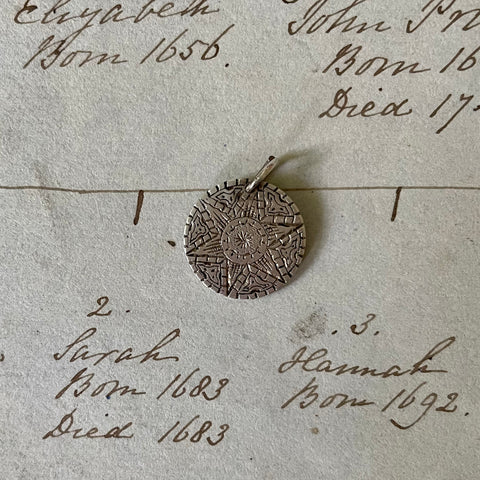 Elizabeth
Born 1656.
John Pr
Born 16
Died 17
2.
Sarah
Born 1683
Died 1683
.3.
Hannah
Born 1692.